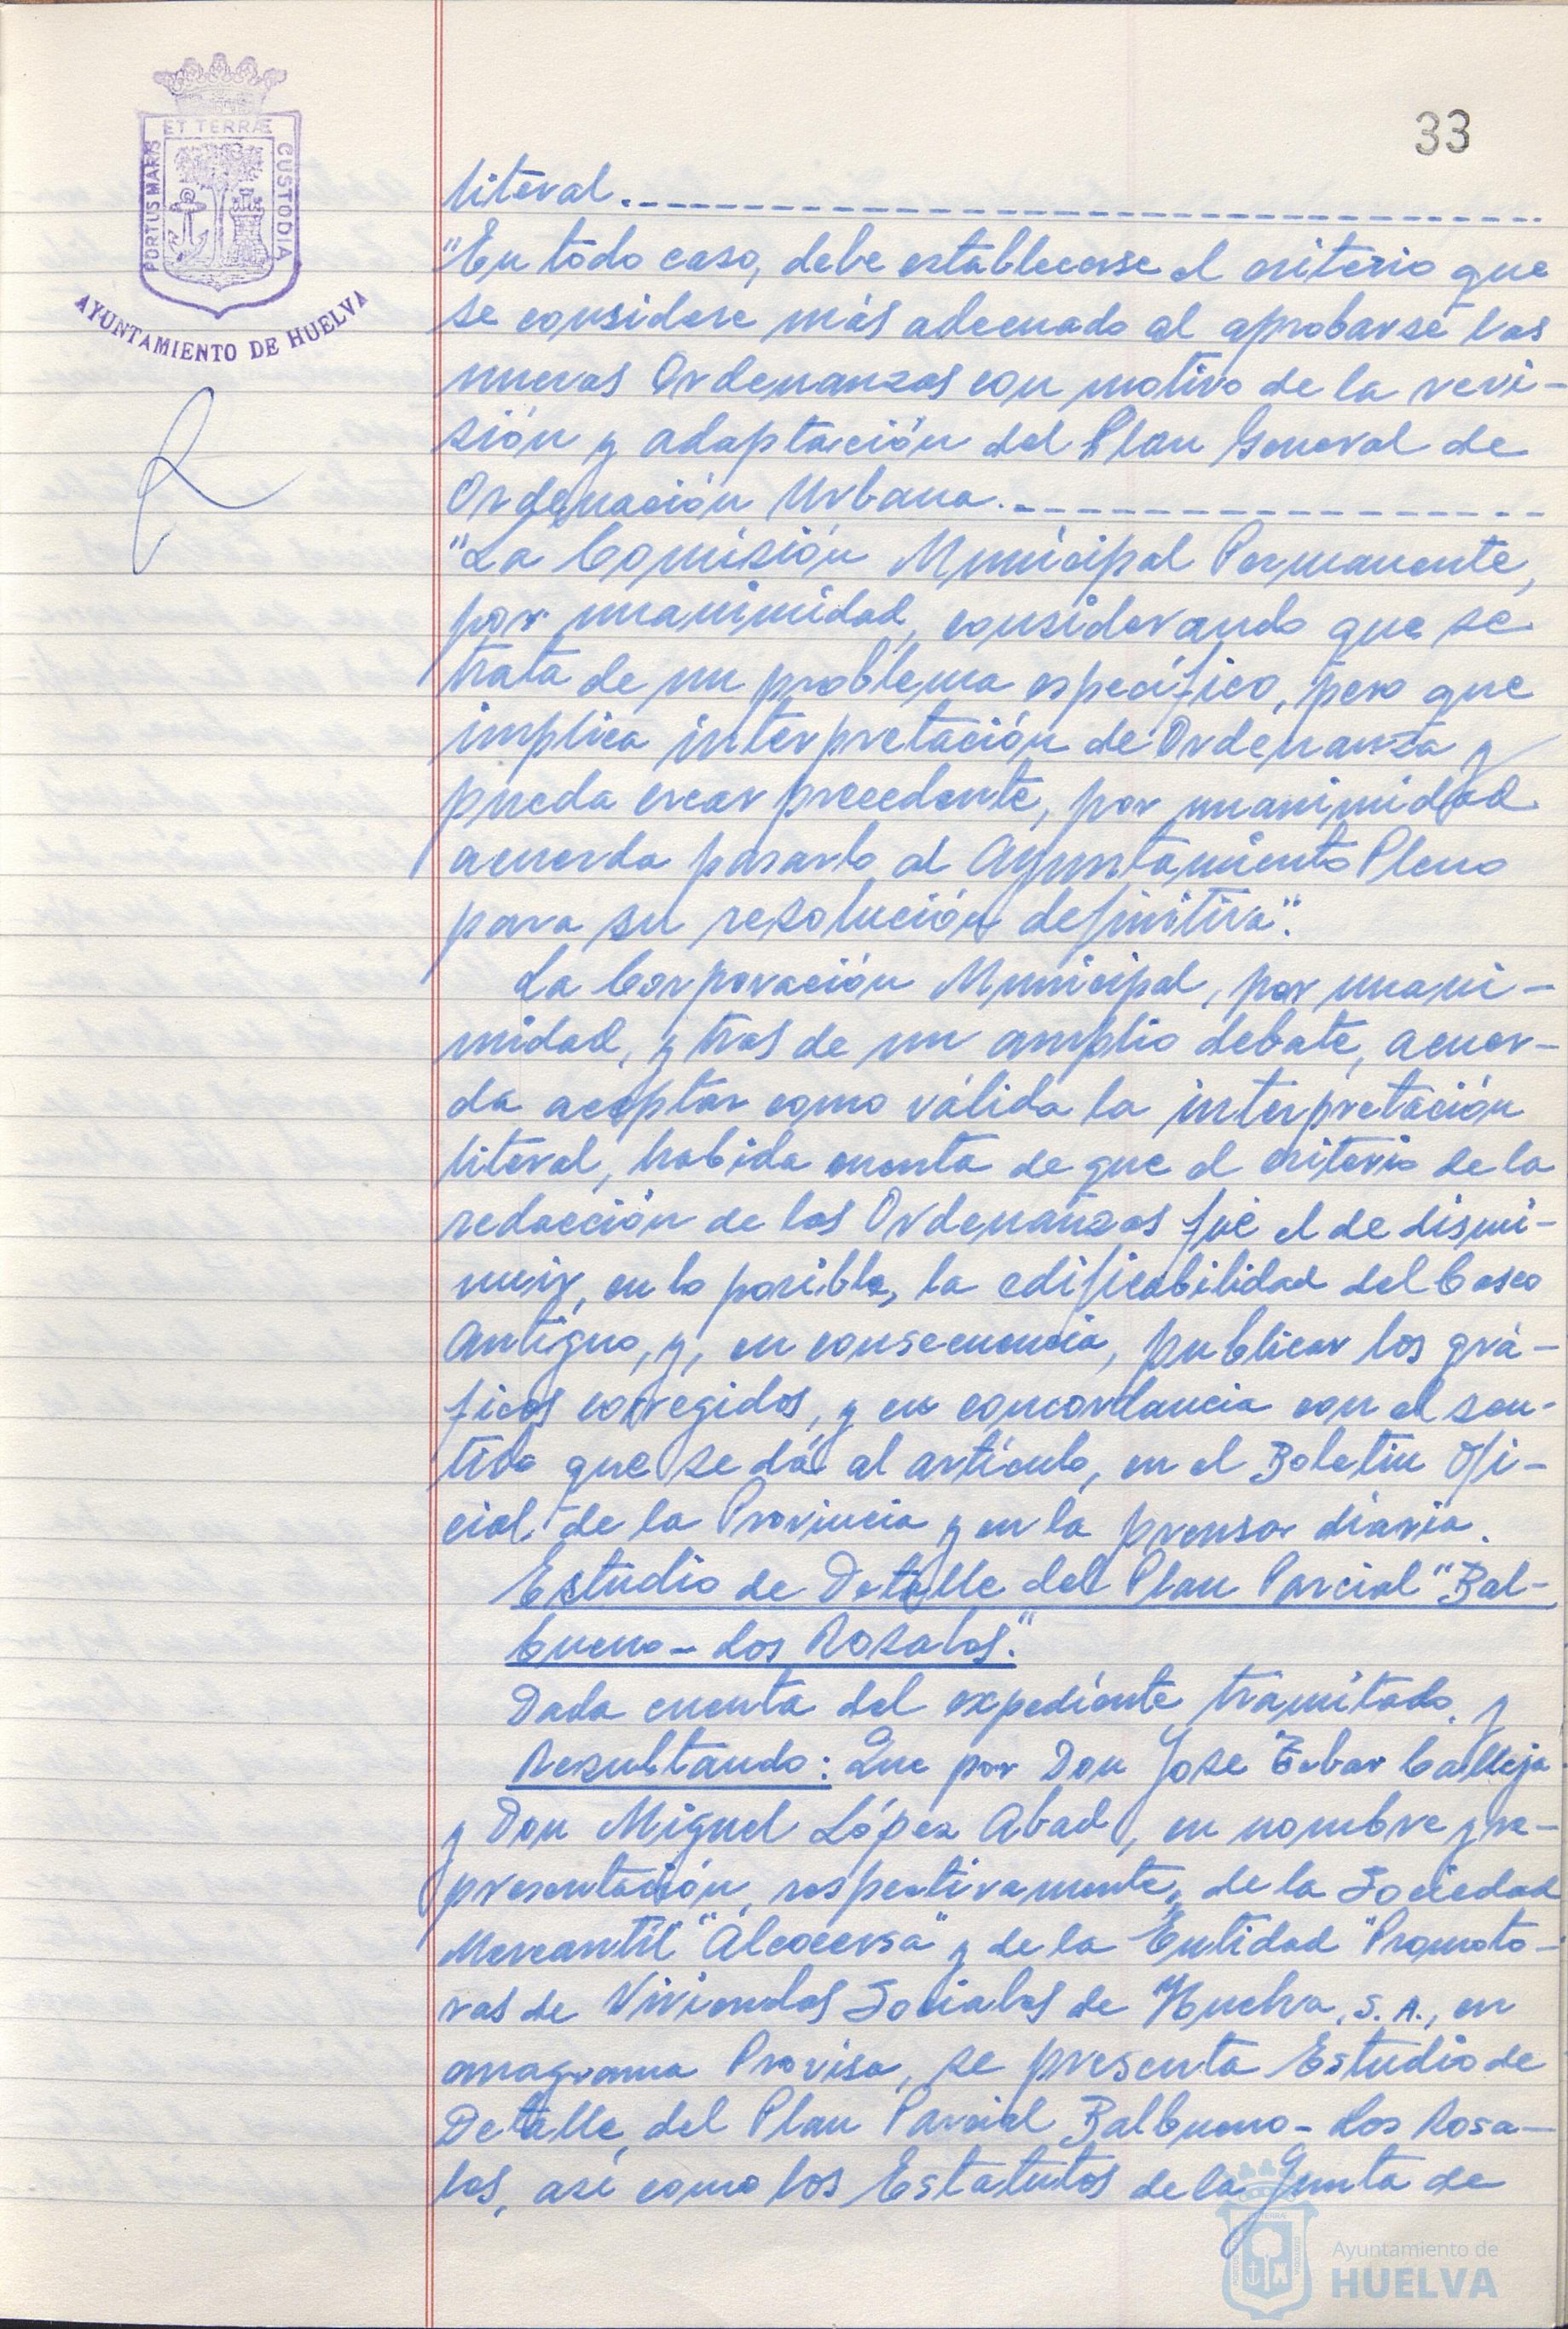 33
ET TERRÆ
PORTUS MARIS
CUSTODIA
AYUNTAMIENTO DE HUELVA
literal.
"En todo caso, debe establecerse el criterio que
se considere más adecuado al aprobarse las
nuevas Ordenanzas con motivo de la revi-
sión y adaptación del Plan General de
Ordenación Urbana.
"La Comisión Municipal Permanente,
por unanimidad, considerando que se
trata de un problema específico, pero que
implica interpretación de Ordenanza y
pueda crear precedente, por unanimidad
acuerda pasarlo al Ayuntamiento Pleno
para su resolución definitiva".
La Corporación Municipal, por unani-
midad, y tras de un amplio debate, acuer-
da aceptar como válida la interpretación
literal, habida cuenta de que el criterio de la
redacción de las Ordenanzas fué el de dismi-
nuir, en lo posible, la edificabilidad del Casco
Antiguo, y, en consecuencia, publicar los grá-
ficos corregidos, y en concordancia con el sen-
tido que se dá al artículo, en el Boletin Ofi-
cial de la Provincia y en la prensa diaria.
Estudio de Detalle del Plan Parcial "Bal-
bueno - Los Rosales."
Dada cuenta del expediente tramitado, y
Resultando: Que por Don Jose Calleja
y Don Miguel López Abad, en nombre y re-
presentación, respectivamente, de la Sociedad
Mercantil "Alcocersa" y de la Entidad "Promoto-
ras de Viviendas Sociales de Huelva, S.A., en
anagrama Provisa, se presenta Estudio de
Detalle, del Plan Parcial Balbueno - Los Rosa-
les, así como los Estatutos de la Junta de
Ayuntamiento de
HUELVA